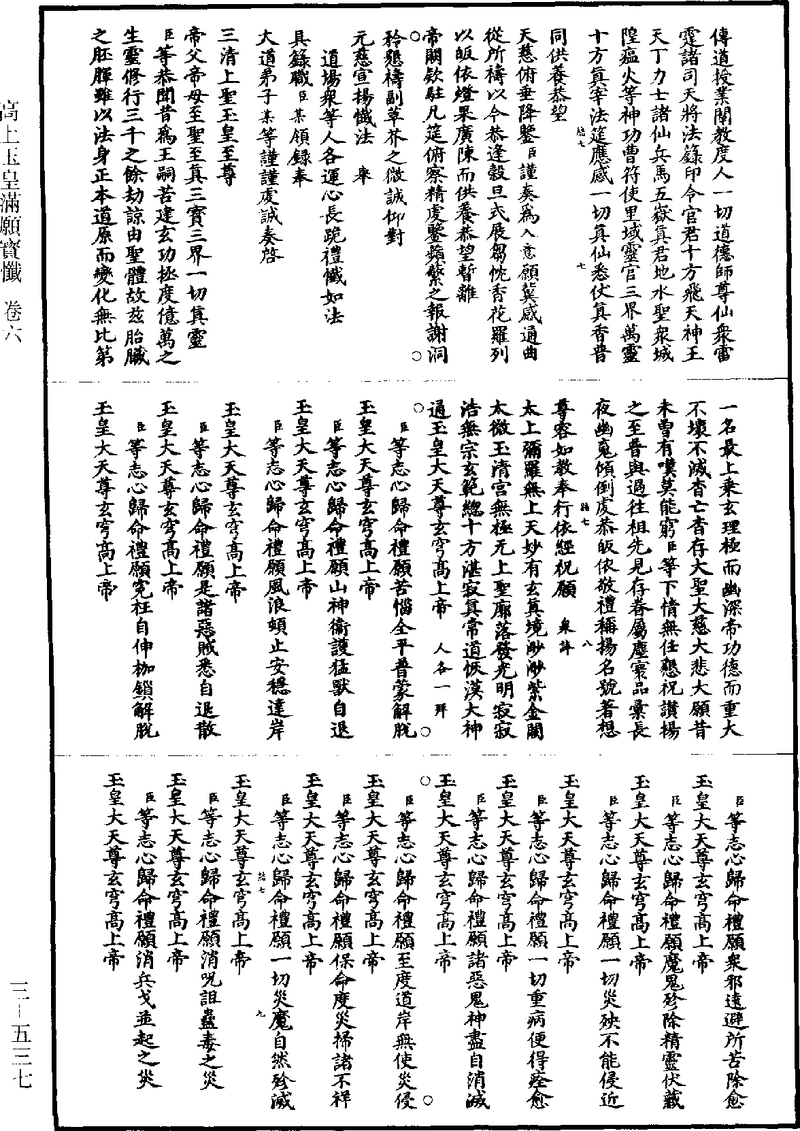 高上玉皇滿願寶懺　卷六
傳道授業闡教度人一切道德師尊仙衆雷
霆諸司天將法籙印令官君十方飛天神王
天丁力士諸仙兵馬五嶽眞君地水聖衆城
隍瘟火等神功曹符使里域靈官三界萬靈
十方眞宰法筵應感一切眞仙悉仗眞香普
同供養恭望
天慈俯垂降鑒臣謹奏爲入意願冀感通曲
從所禱以今恭逢穀旦式展芻忱香花羅列
以皈依燈果廣陳而供養恭望暫離
帝闕欽駐凡筵俯察精虔鑒蘋蘩之報謝洞
矜懇禱副草芥之微誠仰對
元慈宣揚懺法　舉
道場衆等人各運心長跪禮懺如法
具籙職臣某領錄奉
大道弟子某等謹謹虔誠奏啓
三清上聖玉皇至尊
帝父帝母至聖至眞三寶三界一切眞靈
臣等恭聞昔爲王嗣苦建玄功拯度億萬之
生靈修行三千之餘劫諒由聖體故玆胎臟
之胚腪難以法身正本道原而變化無比第
一名最上乘玄理極而幽深帝功德而重大
不壞不滅杳亡杳存大聖大慈大悲大願昔
未曾有嘆莫能窮臣等下情無任懇祝讚揚
之至普與過往祖先見存眷屬塵寰品彙長
夜幽魂傾倒虔恭皈依敬禮稱揚名號著想
尊容如教奉行依經祝願　衆誦
太上彌羅無上天妙有玄眞境渺渺紫金闕
太微玉清宮無極无上聖廓落發光明寂寂
浩無宗玄範總十方湛寂眞常道恢漠大神
通玉皇大天尊玄穹高上帝　人各一拜
臣等志心歸命禮願苦惱全平普蒙解脫
玉皇大天尊玄穹高上帝
臣等志心歸命禮願山神衞護猛獸自退
玉皇大天尊玄穹高上帝
臣等志心歸命禮願風浪頓止安穩達岸
玉皇大天尊玄穹高上帝
臣等志心歸命禮願是諸惡賊悉自退散
玉皇大天尊玄穹高上帝
臣等志心歸命禮願寃枉自伸枷鎖解脫
玉皇大天尊玄穹高上帝
臣等志心歸命禮願衆邪遠避所苦除愈
玉皇大天尊玄穹高上帝
臣等志心歸命禮願魔鬼殄除精靈伏藏
玉皇大天尊玄穹高上帝
臣等志心歸命禮願一切災殃不能侵近
玉皇大天尊玄穹高上帝
臣等志心歸命禮願一切重病便得痊愈
玉皇大天尊玄穹高上帝
臣等志心歸命禮願諸惡鬼神盡自消滅
玉皇大天尊玄穹高上帝
臣等志心歸命禮願至度道岸無使災侵
玉皇大天尊玄穹高上帝
臣等志心歸命禮願保命度災掃諸不祥
玉皇大天尊玄穹高上帝
臣等志心歸命禮願一切災魔自然殄滅
玉皇大天尊玄穹高上帝
臣等志心歸命禮願消呪詛蠱毒之災
玉皇大天尊玄穹高上帝
臣等志心歸命禮願消兵戈並起之災
玉皇大天尊玄穹高上帝
三—五三七